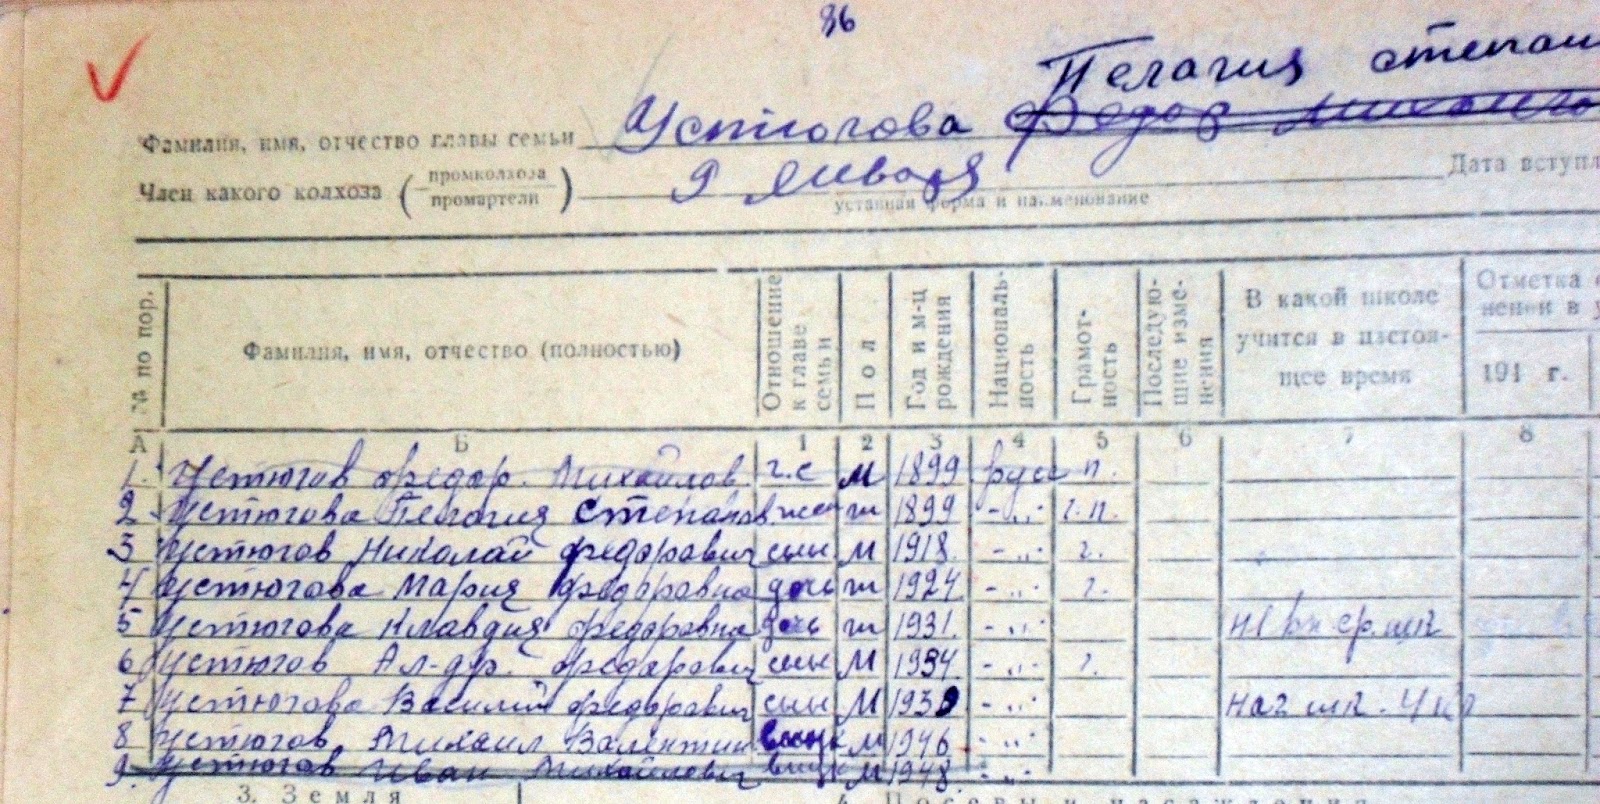 86
Пелагия степан
Фамилия, имя, отчество главы семьи Устюгова Федор Михайло
Член какого колхоза (промколхоза промартели) 9 Января Дата вступл
уставная форма и наименование
№ по пор. Фамилия, имя, отчество (полностью) Отношение к главе семьи Пол Год и м-ц рождения Националь-ность Грамот-ность Последую-щие изме-нения В какой школе учится в настоя-щее время Отметка ненен в у 191 г.
А Б 1 2 3 4 5 6 7 8
1. Устюгов Федор. Михайлов. г.с М 1899 русс п.
2 Устюгова Пелагия Степанов. жен ж 1899 -„- г.п.
3 Устюгов Николай Федорович сын М 1918. -„- г.
4 Устюгова Мария Федоровна дочь ж 1924 -„- г.
5 Устюгова Клавдия Федоровна дочь ж 1931. -„-
6 Устюгов Ал-др. Федорович сын М 1934 -„- г.
7 Устюгова Василий Федорович сын М 193 -„- нач шк. 4 кл
8 Устюгов Михаил Валентин внук м 1946 -„-
9. Устюгов Иван Михайлович внук м 1948 -„-
3. Земля 4. Посевы и насаждения